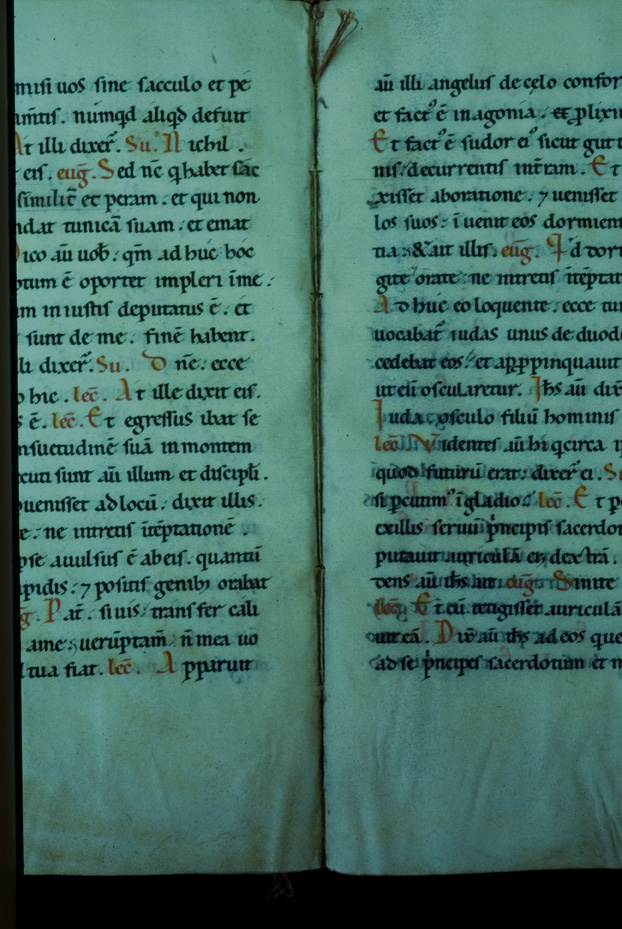 misi uos sine sacculo et pe
am̄tis. numqd aliqd defuit
At illi dixer̄. Su. Nichil.
eis. eug̅. Sed nc̄ q habet sac
similit̄ et peram. et qui non
ndat tunicā suam. et emat
Dico aū uob̄. qm̄ ad huc hoc
ptum ē oportet impleri ī me.
um in iustis deputatus ē. et
sunt de me. finē habent.
lli dixer̄. Su. Dn̄e. ecce
o hic. lec̄. At ille dixit eis.
s ē. lec̄. Et egressus ibat se
nsuetudinē suā in montem
ecuti sunt aū illum et discipl̄i.
puenisset ad locū. dixit illis.
e. ne intretis ītēptationē.
pse auulsus ē ab eis. quantū
apidis. ⁊ positis genibꝫ orabat
g̅. Pat̄. si uis. transfer cali
ame. ueruptam̄. n̄ mea uo
tua fiat. lec̄. Apparuit
aū illi angelus de celo confor
et fact᾿ ē in agonia. et ꝓlixiu
Et fact᾿ ē sudor ei᾿ sicut gutt
nis decurrentis int̄ram. Et
xisset ab oratione. ⁊ uenisset
los suos. īuenit eos dormien
tia. & ait illis. eug̅. Qd dor
gite orate. ne intretis ītēptat
Adhuc eo loquente. ecce tu
uocabat᾿ iudas unus de duod
cedebat eos. et apꝓpinquauit
ut eū oscularetur. Ih̄s aū dix
Iuda. osculo filiū hominis
lec̄. Videntes aū hi q circa
quod futurū erat. dixer̄ ei. Su
si ꝑcutim᾿ ī gladio. lec̄. Et
ex illis seruū pncipis sacerdot
putauit auriculā ei᾿ dext̄rā.
dens aū ih̄s ait. eug̅. Sinite
lec̄. Et cū tetigisset auriculā
uit eā. Dix̄ aū ih̄s ad eos que
ad se pncipes sacerdotum et m